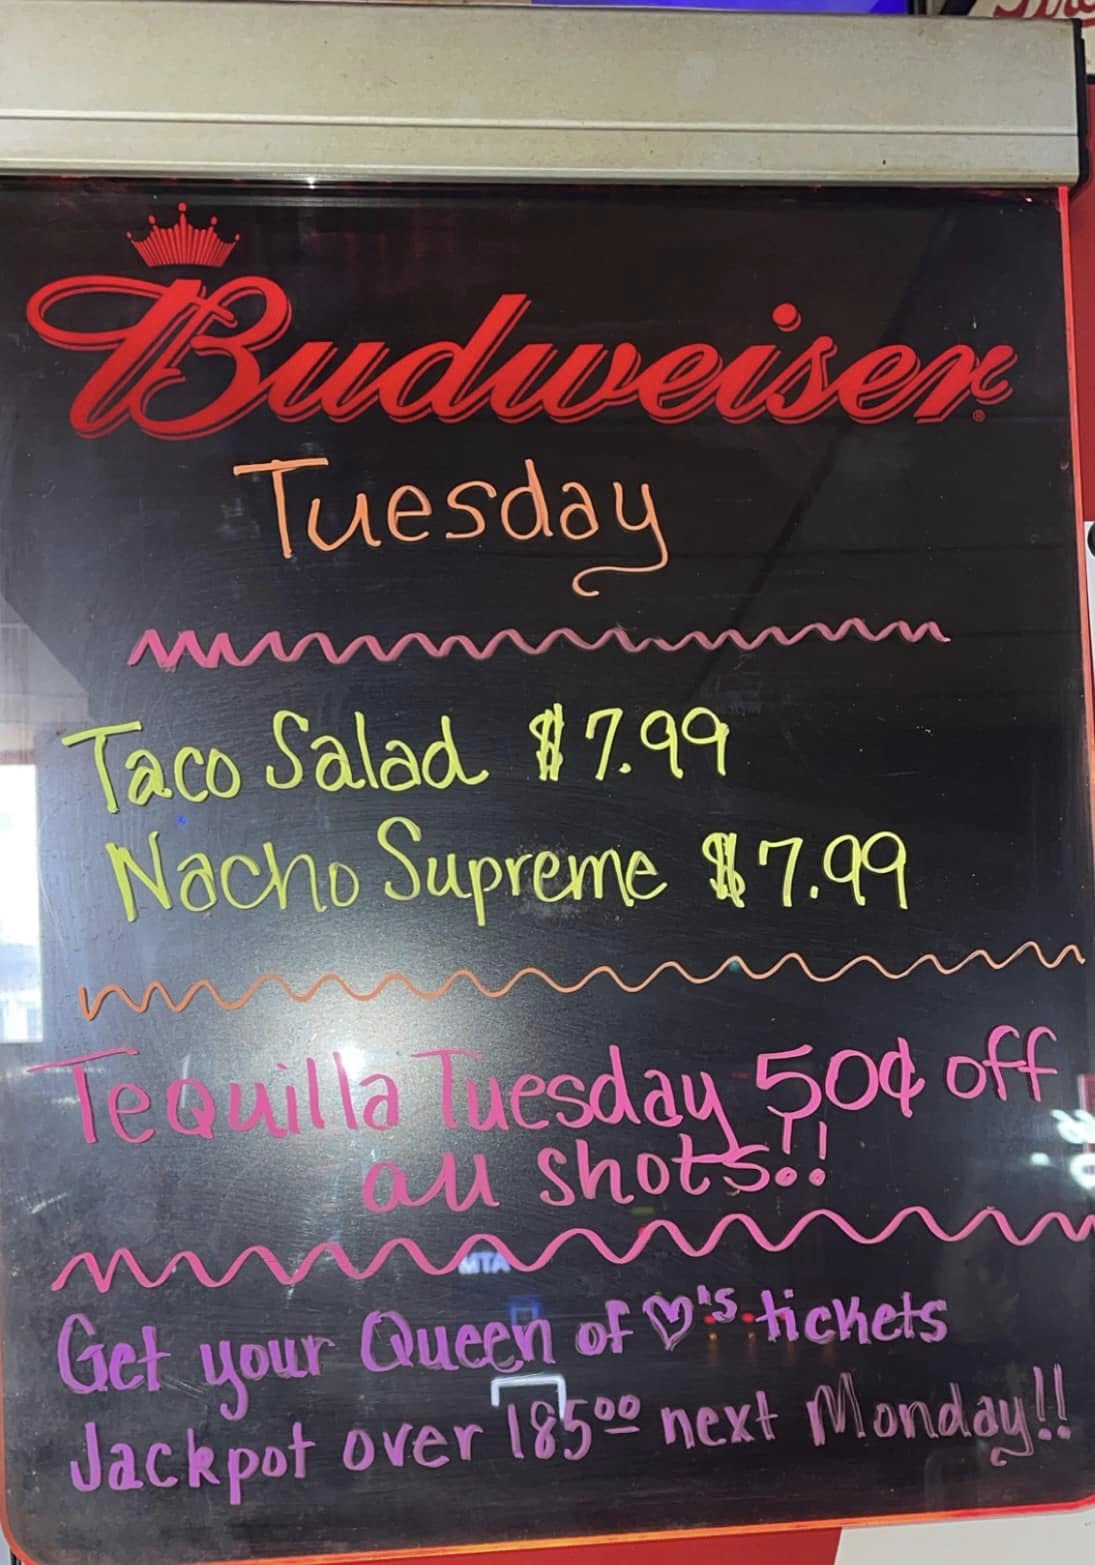 Budweiser®
Tuesday
Taco Salad $7.99
Nacho Supreme $7.99
Tequilla Tuesday 50¢ off
all shots!!
Get your Queen of ♡'s tickets
Jackpot over 185⁰⁰ next Monday!!
MTA